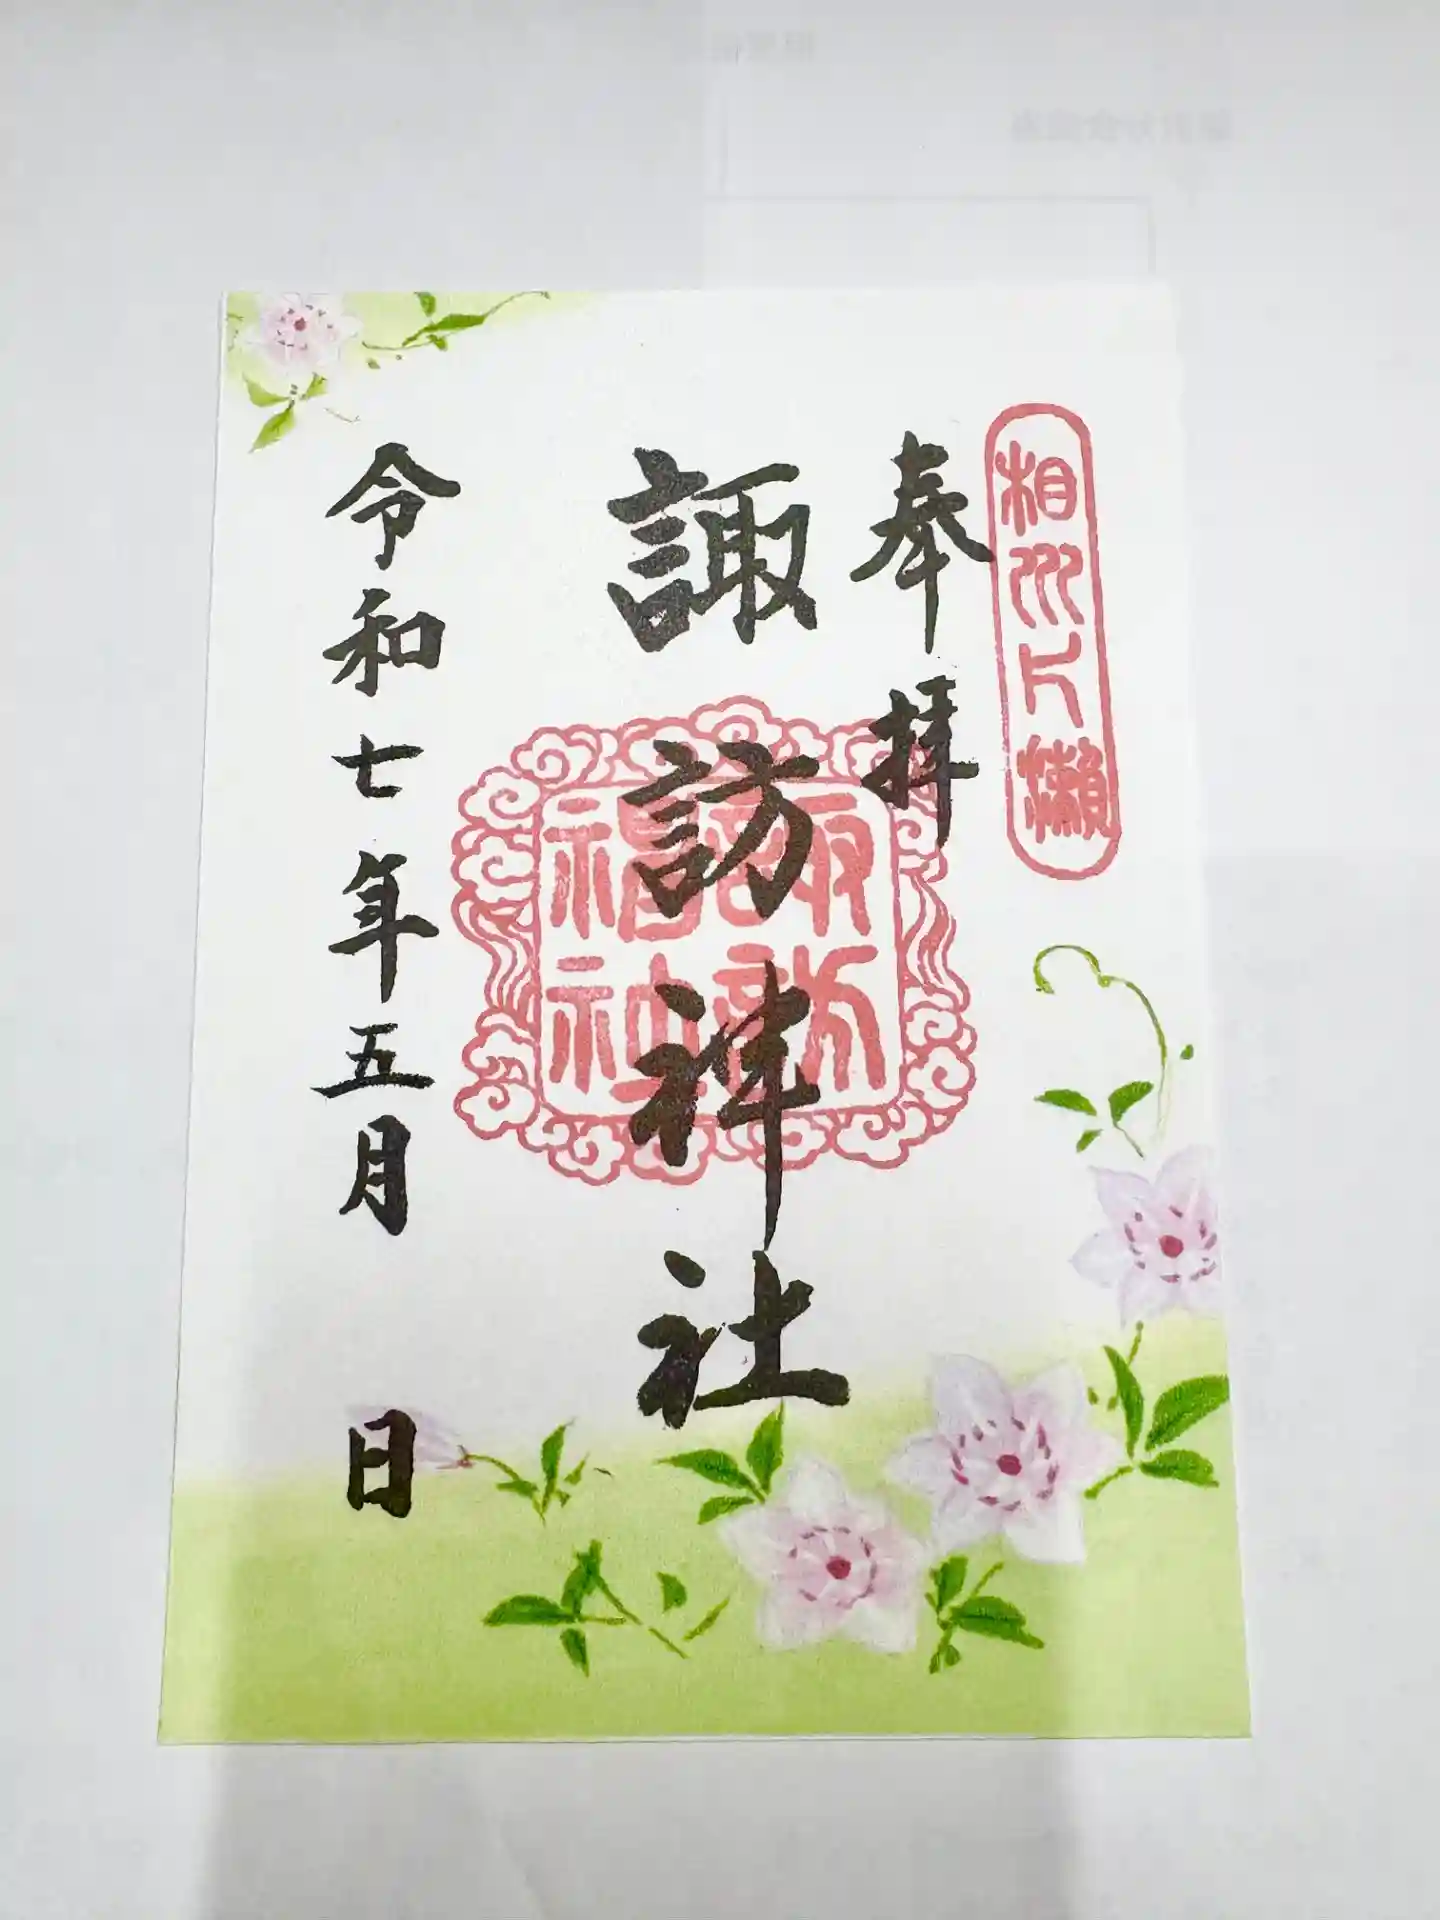 相州片瀬
奉拝
諏訪神社
諏訪神社
令和七年五月 日